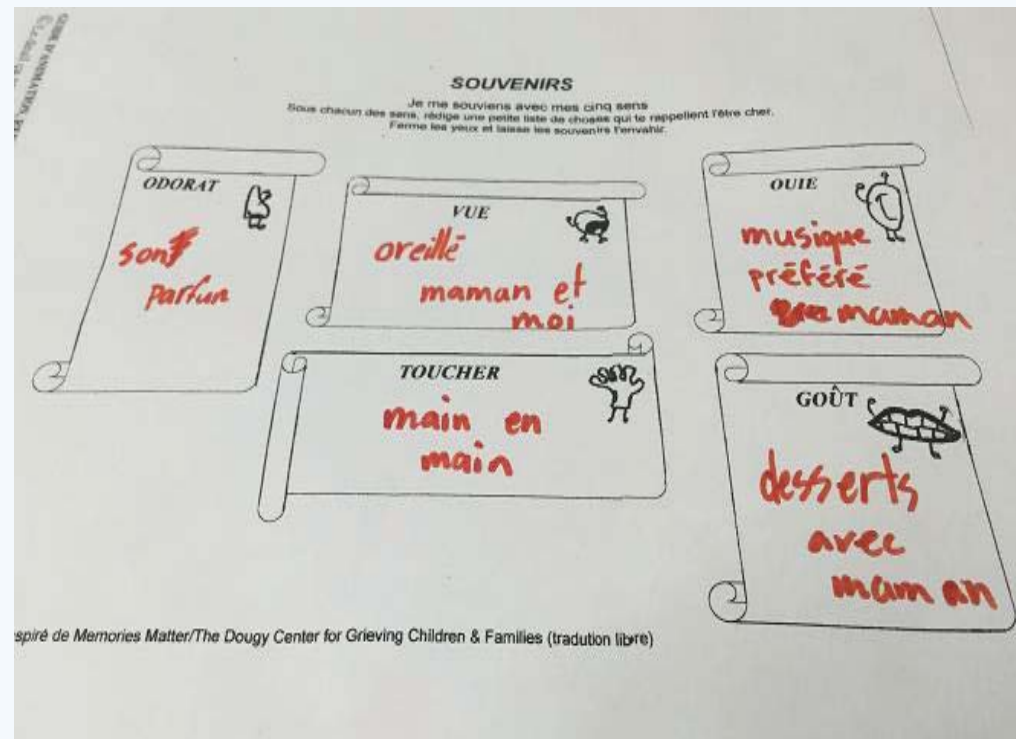 GUIDE D'ANIMATION,
SOUVENIRS
Je me souviens avec mes cinq sens
Sous chacun des sens, rédige une petite liste de choses qui te rappellent l'être cher.
Ferme les yeux et laisse les souvenirs t'envahir.
ODORAT
son
parfun
VUE
oreillé
maman et
moi
OUIE
musique
préféré
maman
TOUCHER
main en
main
GOÛT
desserts
avec
maman
spiré de Memories Matter/The Dougy Center for Grieving Children & Families (tradution libre)